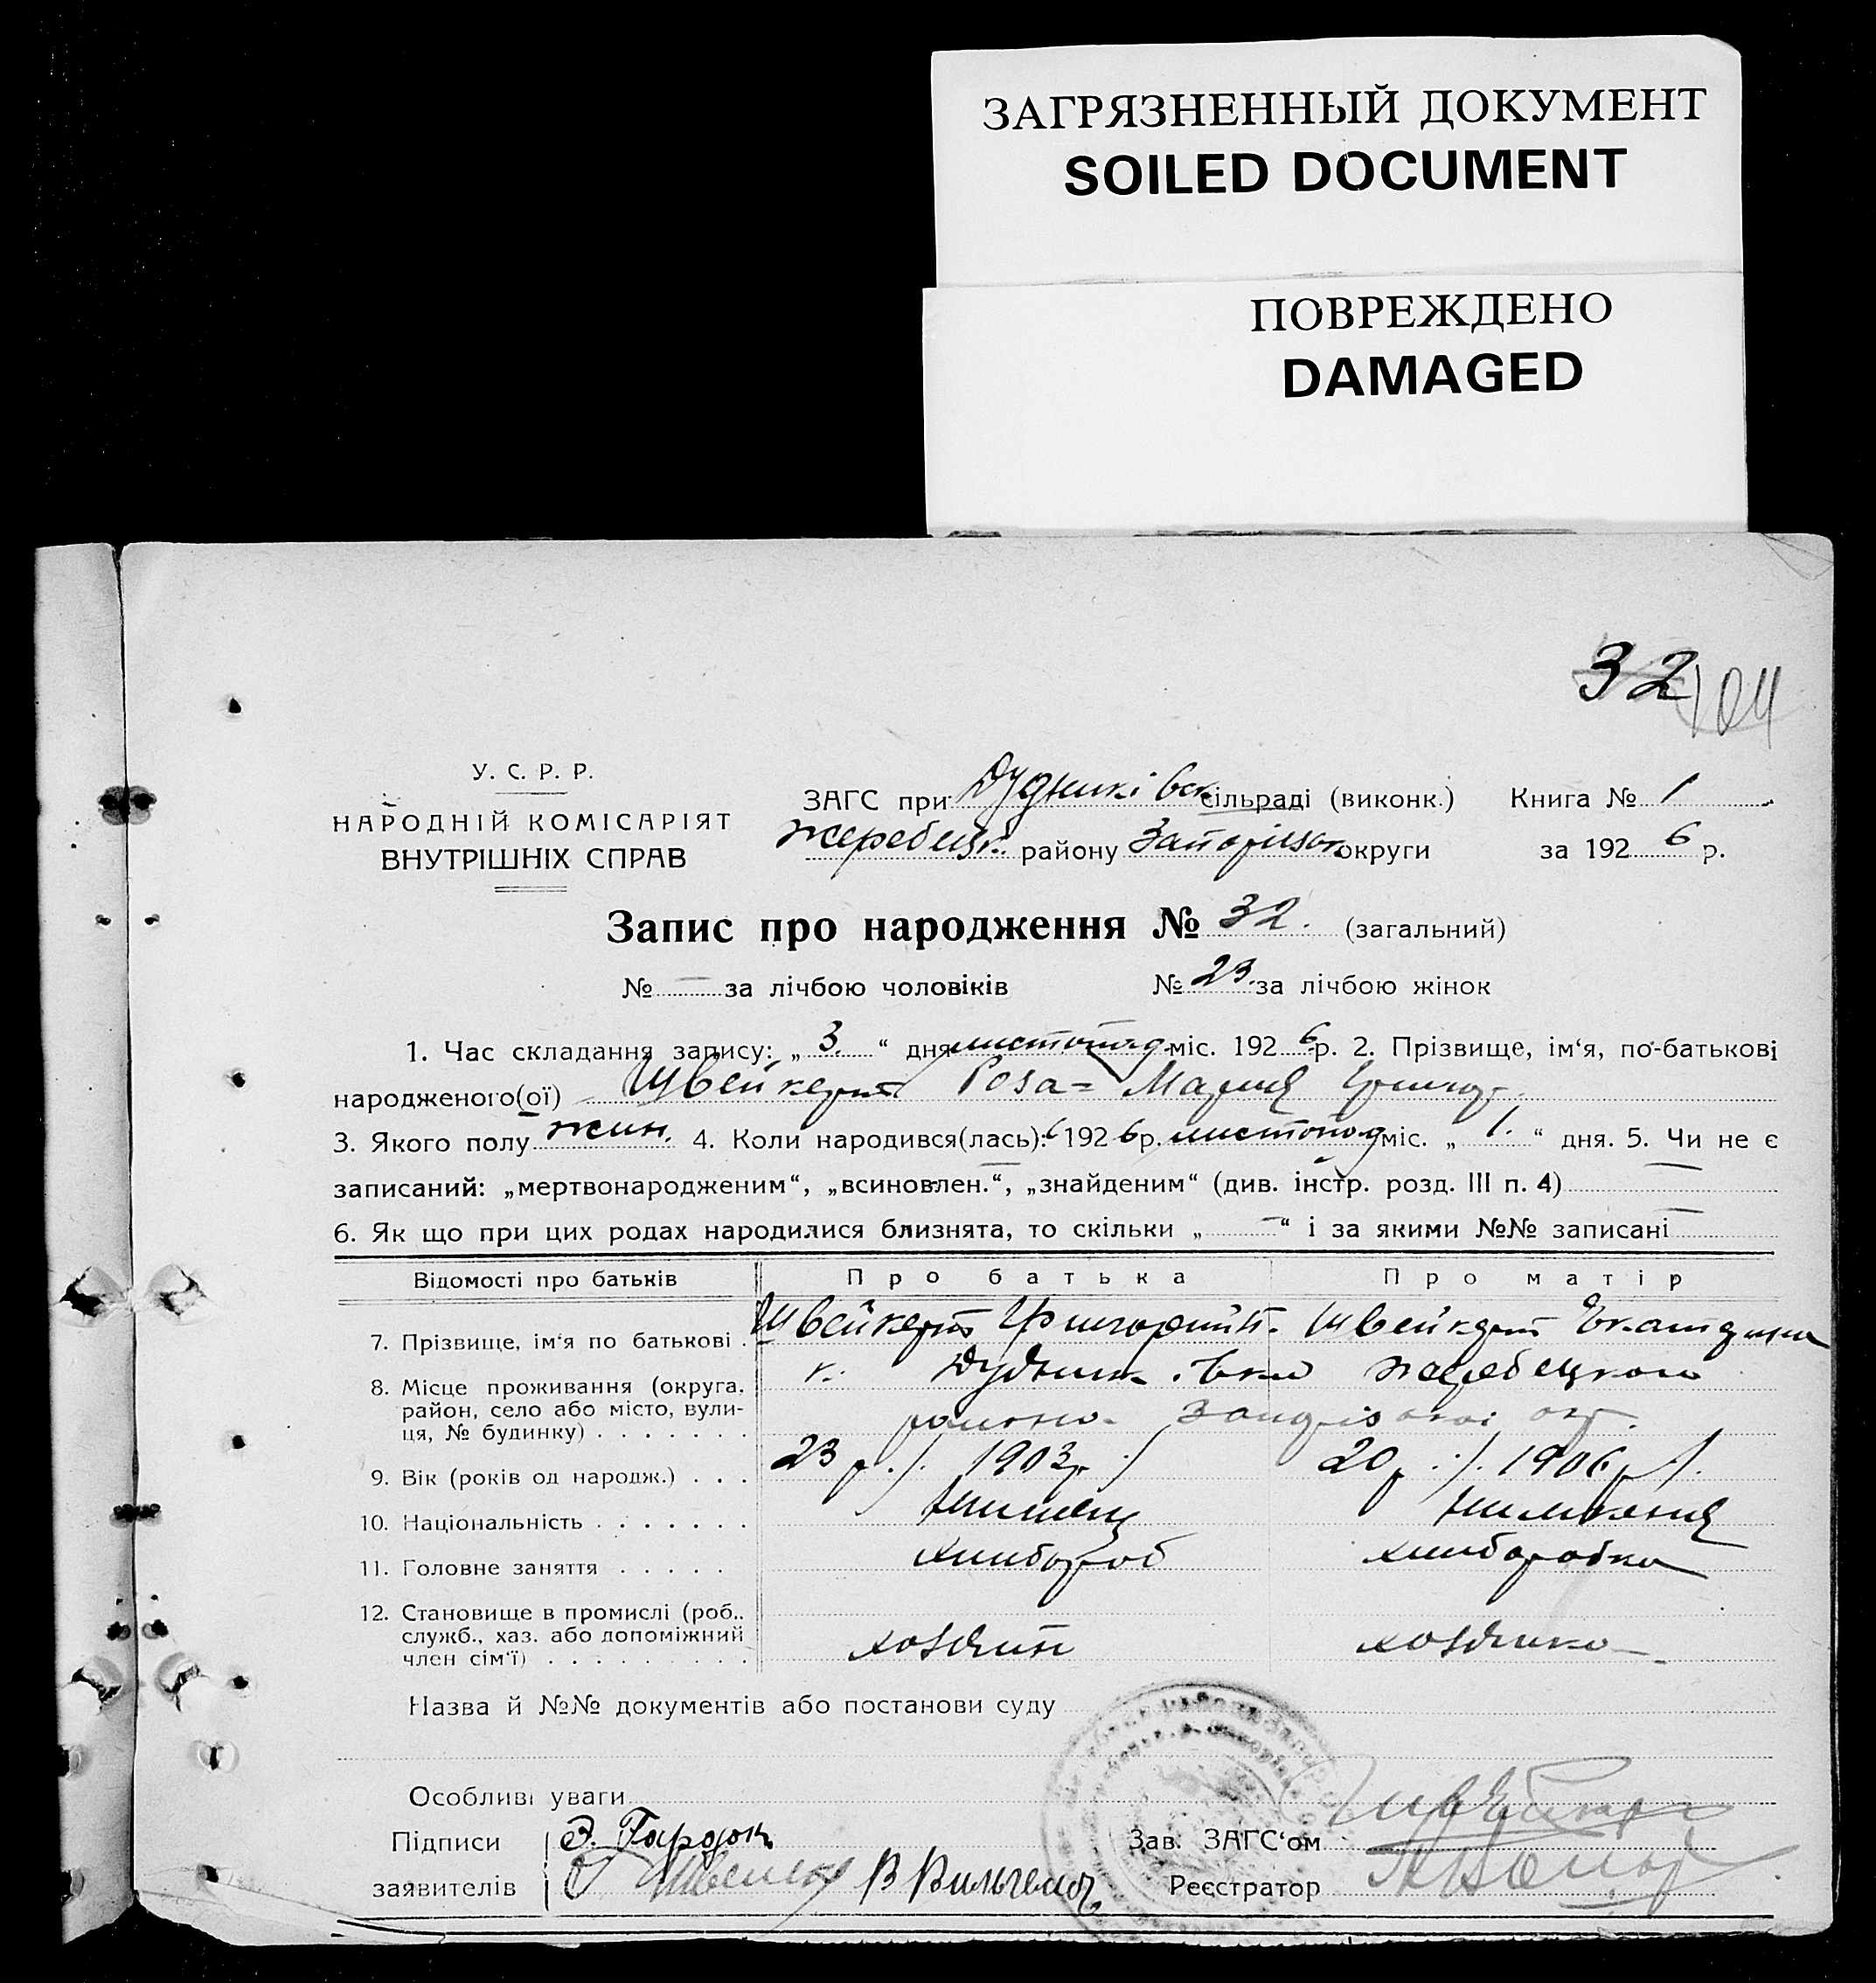 ЗАГРЯЗНЕННЫЙ ДОКУМЕНТ
SOILED DOCUMENT
ПОВРЕЖДЕНО
DAMAGED
32
104
У. С. Р. Р.
НАРОДНІЙ КОМІСАРІЯТ
ВНУТРІШНІХ СПРАВ
ЗАГС при Дудниківськ сільраді (виконк.) Книга № 1
Жеребецьк. району Запоріжськ округи за 192 6 р.
Запис про народження № 32. (загальний)
№ — за лічбою чоловіків № 23. за лічбою жінок
1. Час складання запису: „ 3. “ дня листопад міс. 192 6 р. 2. Прізвище, ім‘я, по-батькові
народженого(ої) Швейкерт Роза = Мария Григор.
3. Якого полу жин. 4. Коли народився(лась): 192 6 р. листопад міс. „ 1. “ дня. 5. Чи не є
записаний: „мертвонародженим“, „всиновлен.“, „знайденим“ (див. інстр. розд. III п. 4) —
6. Як що при цих родах народилися близнята, то скільки „ — “ і за якими №№ записані —
Відомості про батьків Про батька Про матір
7. Прізвище, ім‘я по батькові . Швейкерт Григорий П. Швейкерт Екатерина
8. Місце проживання (округа, к. Дудниківка Жеребецкого
район, село або місто, вули-
ця, № будинку) . . . . . . . району округ.
9. Вік (років од народж.) . . . 23 р. /. 1903 р. / 20 р. /. 1906 р. /.
10. Національність . . . . . . . Нимець Нимкеня
11. Головне заняття . . . . . хлибороб хлиборобка
12. Становище в промислі (роб.,
служб., хаз. або допоміжний
член сім‘ї) . . . . . . . . . хозяин хозяика
Назва й №№ документів або постанови суду
Особливі уваги
Підписи Э. Гардок
Зав. ЗАГС‘ом
заявителів В Вильгельм
Реєстратор